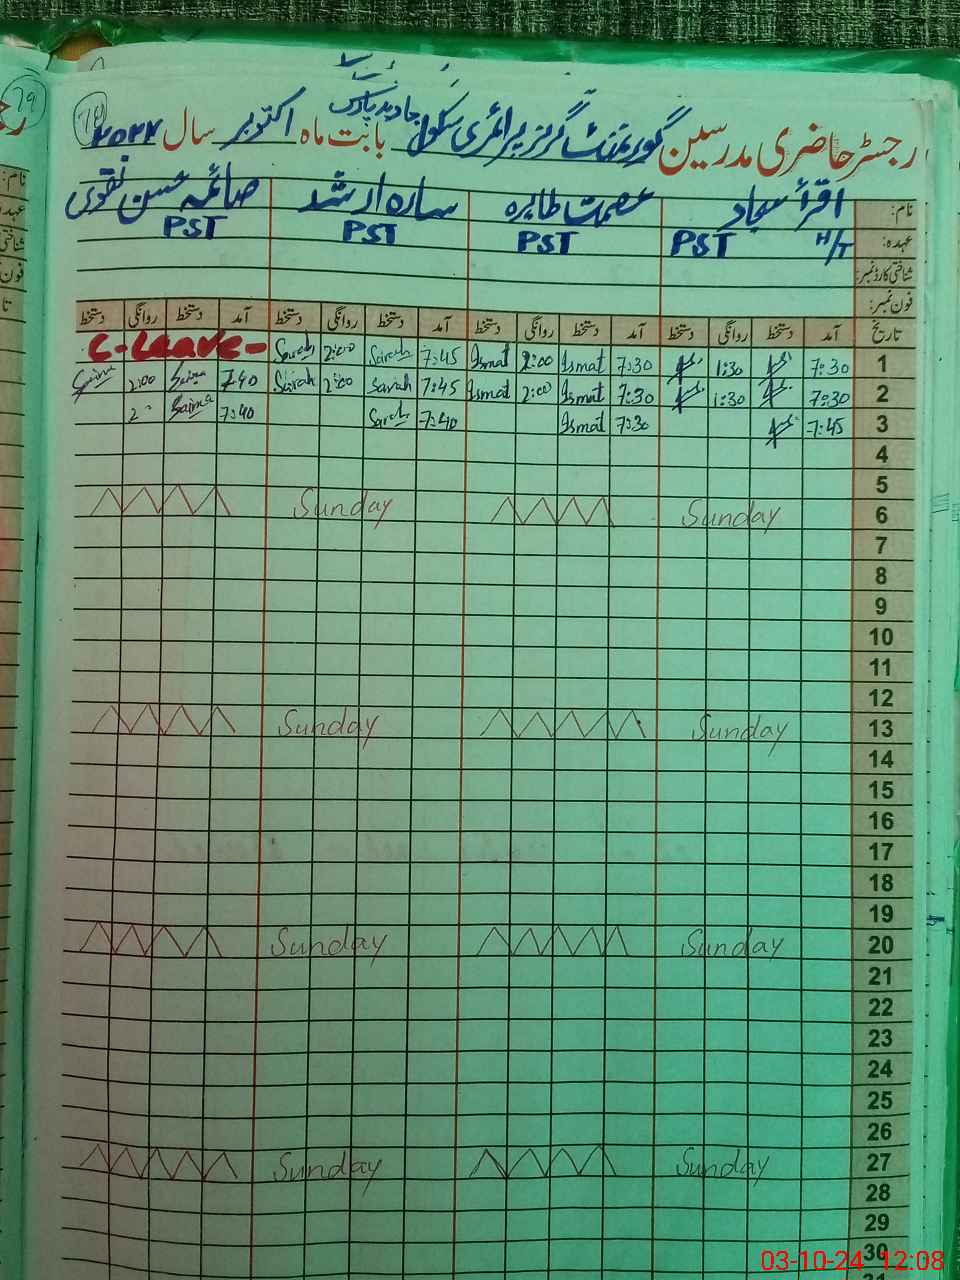 79
78
رجسٹر حاضری مدرسین گورنمنٹ گرلز پرائمری سکول جاوید پارک بابت ماہ اکتوبر سال ۲۰۲۴
نام: اقرأ سجاد عصمت طاہرہ سارہ ارشد صائمہ محسن نقوی
عہدہ: H/T PST PST PST PST
شناختی کارڈ نمبر:
فون نمبر:
تاریخ آمد دستخط روانگی دستخط آمد دستخط روانگی دستخط آمد دستخط روانگی دستخط آمد دستخط روانگی دستخط
1 7:30 1:30 7:30 Ismat 2:00 Ismat 7:45 Sarah 2:00 Sarah C-Leave-
2 7:30 1:30 7:30 Ismat 2:00 Ismat 7:45 Sarah 2:00 Sarah 7:40 Saima 2:00 Saima
3 7:45 7:30 Ismat 7:40 Sarah 7:40 Saima 2:
4
5
6 Sunday Sunday
7
8
9
10
11
12
13 Sunday Sunday
14
15
16
17
18
19
20 Sunday Sunday
21
22
23
24
25
26
27 Sunday Sunday
28
29
30
03-10-24 12:08